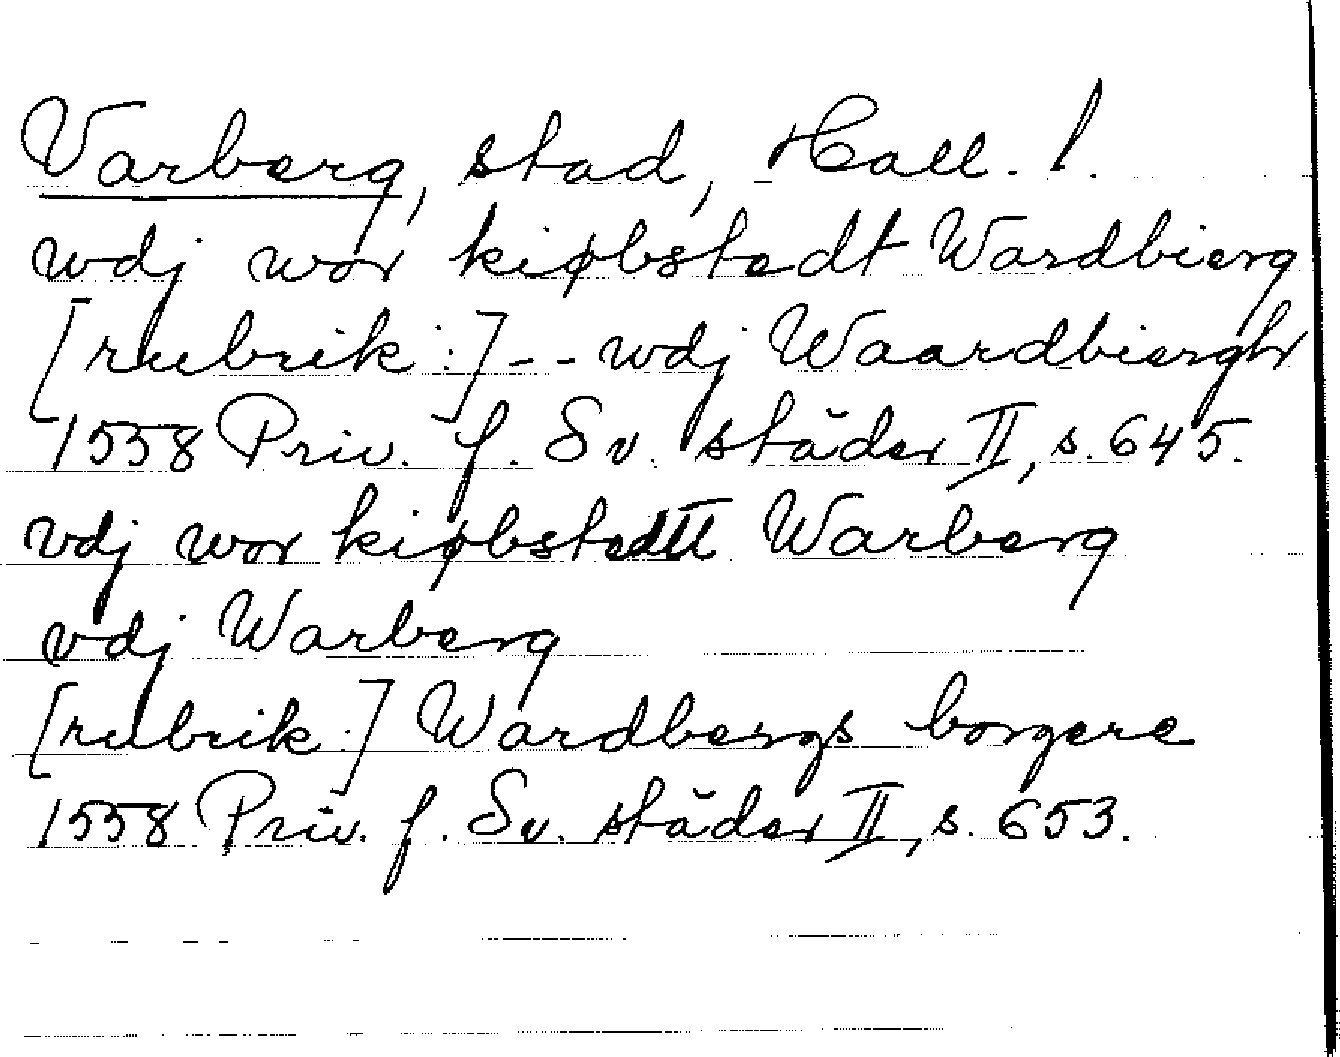 Varberg, stad, Hall. l.
wdj wor kiøbstedt Wardbierg
[rubrik:] -- wdj Waardbiergh
1558 Priv. f. Sv. städer II, s. 645.
vdj wor kiøbstedtt Warberg
vdj Warberg
[rubrik:] Wardbergs borgere
1558 Priv. f. Sv. städer II, s. 653.